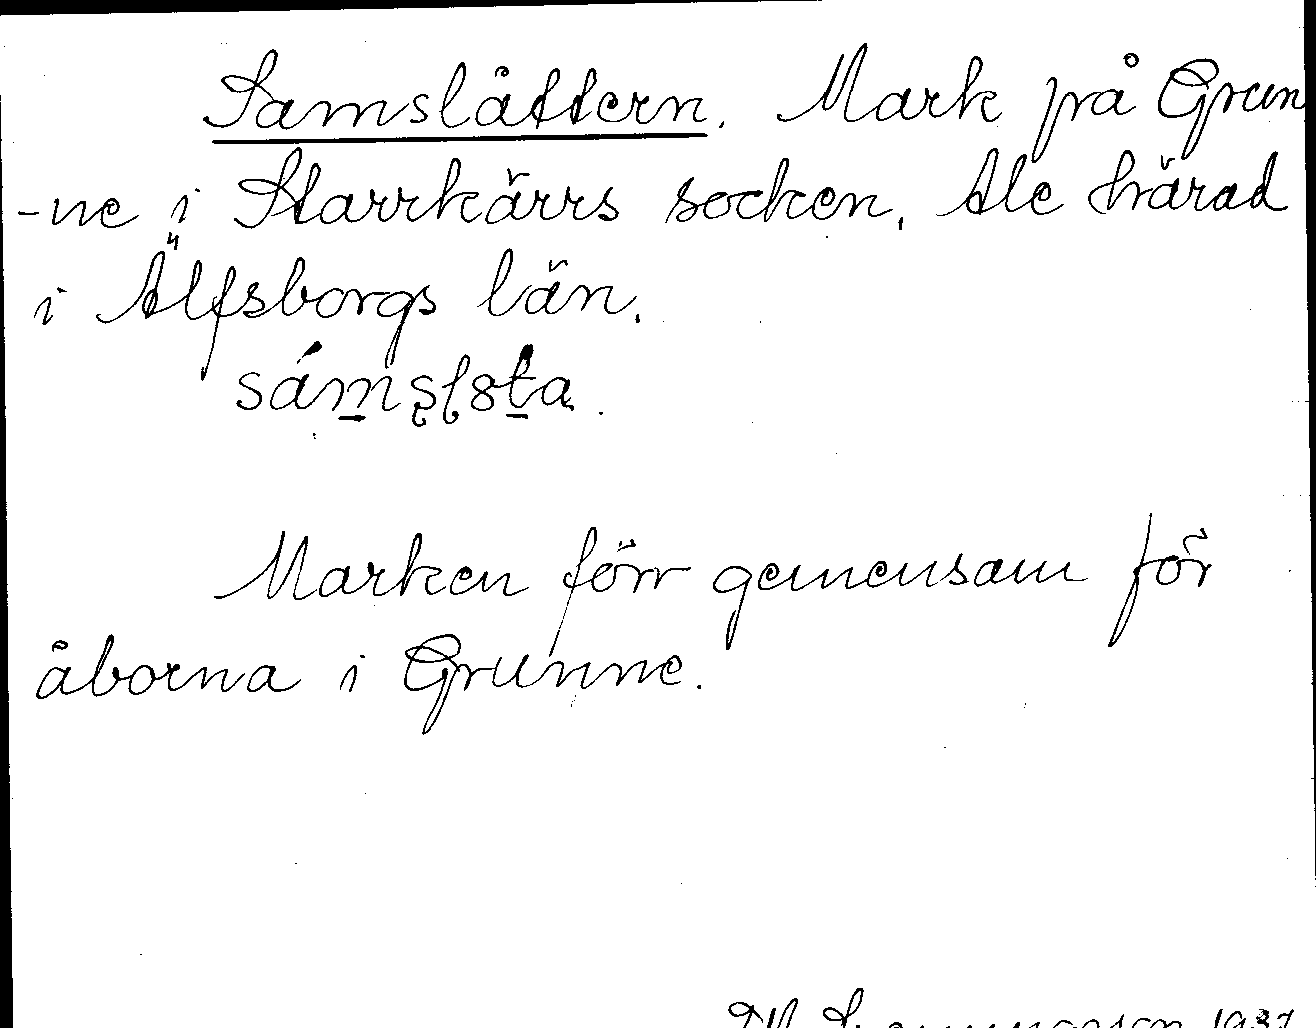 Samslåttern. Mark på Grun
-ne i Starrkärrs socken, Ale härad
i Älfsborgs län.
Marken förr gemensam för
åborna i Grunne.
1937